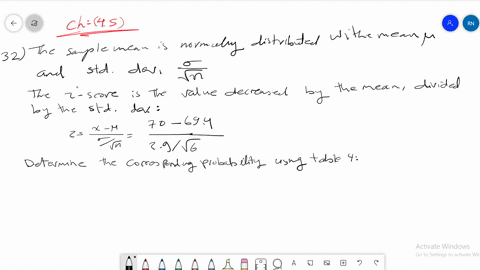 Ch=(45)
32) The sample mean is normally distributed with mean μ
and std. dev. σ/√n
The z-score is the value decreased by the mean, divided
by the std. dev:
z= x-μ / σ/√n = 70-69.4 / 2.9/√6
Determine the corresponding probability using table 4:
RN
Activate Windows
Go to Settings to activate Wi